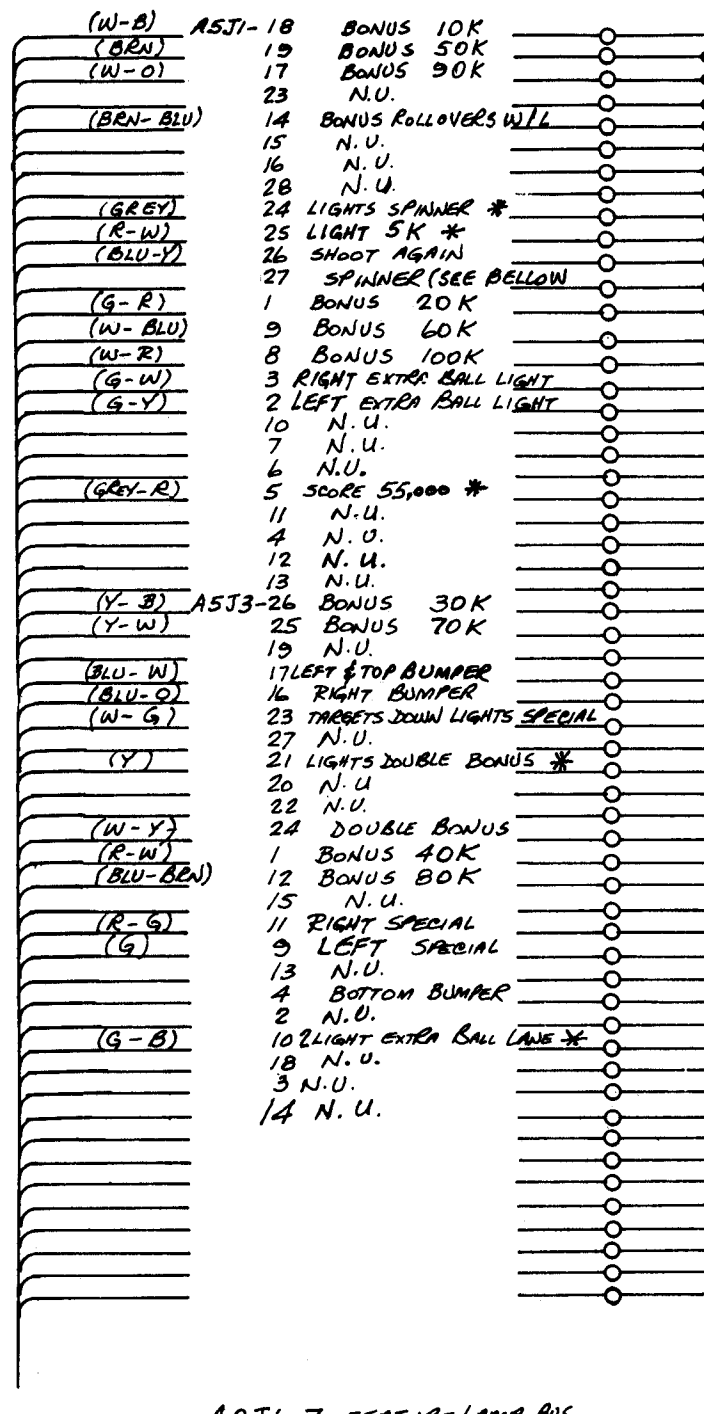 (W-B) A5J1-18 BONUS 10K
(BRN) 19 BONUS 50K
(W-O) 17 BONUS 90K
23 N.U.
(BRN-BLU) 14 BONUS ROLLOVERS W/L
15 N.U.
16 N.U.
28 N.U.
(GREY) 24 LIGHTS SPINNER *
(R-W) 25 LIGHT 5K *
(BLU-Y) 26 SHOOT AGAIN
27 SPINNER (SEE BELLOW
(G-R) 1 BONUS 20K
(W-BLU) 9 BONUS 60K
(W-R) 8 BONUS 100K
(G-W) 3 RIGHT EXTRA BALL LIGHT
(G-Y) 2 LEFT EXTRA BALL LIGHT
10 N.U.
7 N.U.
6 N.U.
(GREY-R) 5 SCORE 55,000 *
11 N.U.
4 N.U.
12 N.U.
13 N.U.
(Y-B) A5J3-26 BONUS 30K
(Y-W) 25 BONUS 70K
19 N.U.
(BLU-W) 17 LEFT & TOP BUMPER
(BLU-O) 16 RIGHT BUMPER
(W-G) 23 TARGETS DOWN LIGHTS SPECIAL
27 N.U.
(Y) 21 LIGHTS DOUBLE BONUS *
20 N.U
22 N.U.
(W-Y) 24 DOUBLE BONUS
(R-W) 1 BONUS 40K
(BLU-BRN) 12 BONUS 80K
15 N.U.
(R-G) 11 RIGHT SPECIAL
(G) 9 LEFT SPECIAL
13 N.U.
4 BOTTOM BUMPER
2 N.U.
(G-B) 10 2 LIGHT EXTRA BALL LANE *
18 N.U.
3 N.U.
14 N.U.